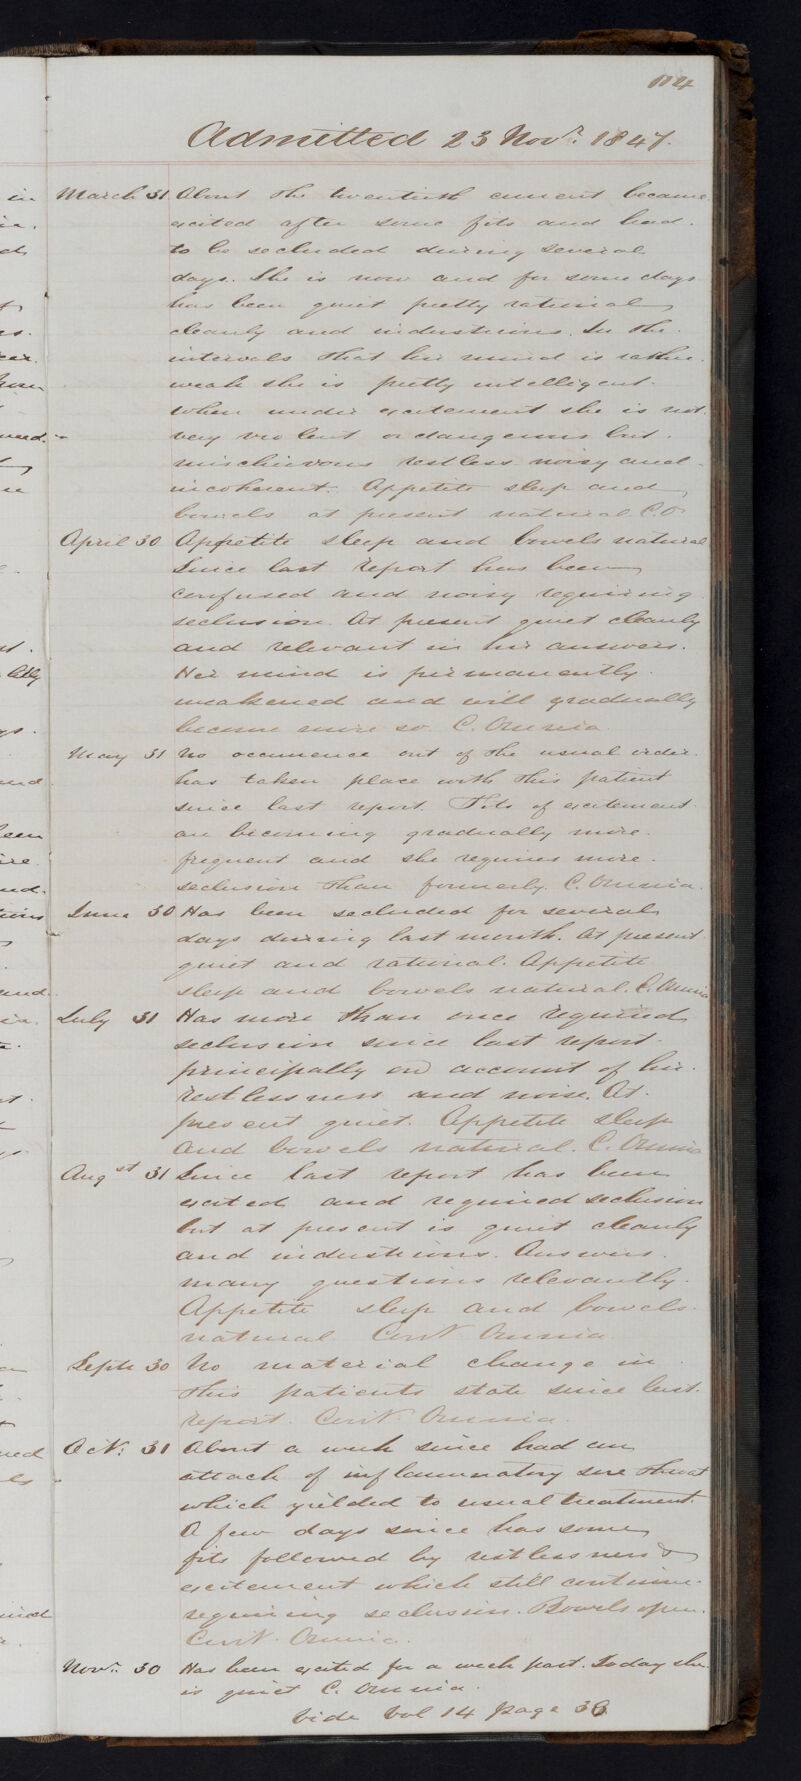 184
Admitted 23 Novr. 1847.
March 31 About the twentieth current became
excited after some fits and had
to be secluded during several
days. She is now and for some days
has been quiet pretty rational
cleanly and industrious. In the
intervals that her mind is rather
weak she is pretty intelligent.
When under excitement she is not
very violent or dangerous but
mischievous restless noisy and
incoherent. Appetite sleep and
bowels at present natural. C.O.
April 30 Appetite sleep and bowels natural
Since last report has been
confused and noisy requiring
seclusion. At present quiet cleanly
and relevant in her answers.
Her mind is permanently
weakened and will gradually
become more so. C. Omnia
May 31 No occurrence out of the usual order
has taken place with this patient
since last report. Fits of excitement
are becoming gradually more
frequent and she requires more
seclusion than formerly. C. Omnia.
June 30 Has been secluded for several
days during last month. At present
quiet and rational. Appetite
sleep and bowels natural. C. Omnia
July 31 Has more than once required
seclusion since last report
principally on account of her
restlessness and noise. At
present quiet. Appetite sleep
and bowels natural. C. Omnia
Augst 31 Since last report has been
excited and required seclusion
but at present is quiet cleanly
and industrious. Answers
many questions relevantly.
Appetite sleep and bowels
natural. Cont. Omnia
Septr 30 No material change in
this patients state since last
report. Cont. Omnia.
Oct. 31 About a week since had an
attack of inflammatory sore throat
which yielded to usual treatment.
A few days since has some
fits followed by restlessness &
excitement which still continue
requiring seclusion. Bowels open.
Cont. Omnia.
Novr. 30 Has been excited for a week past. Today she
is quiet C. Omnia.
Vide Vol 14 page 36